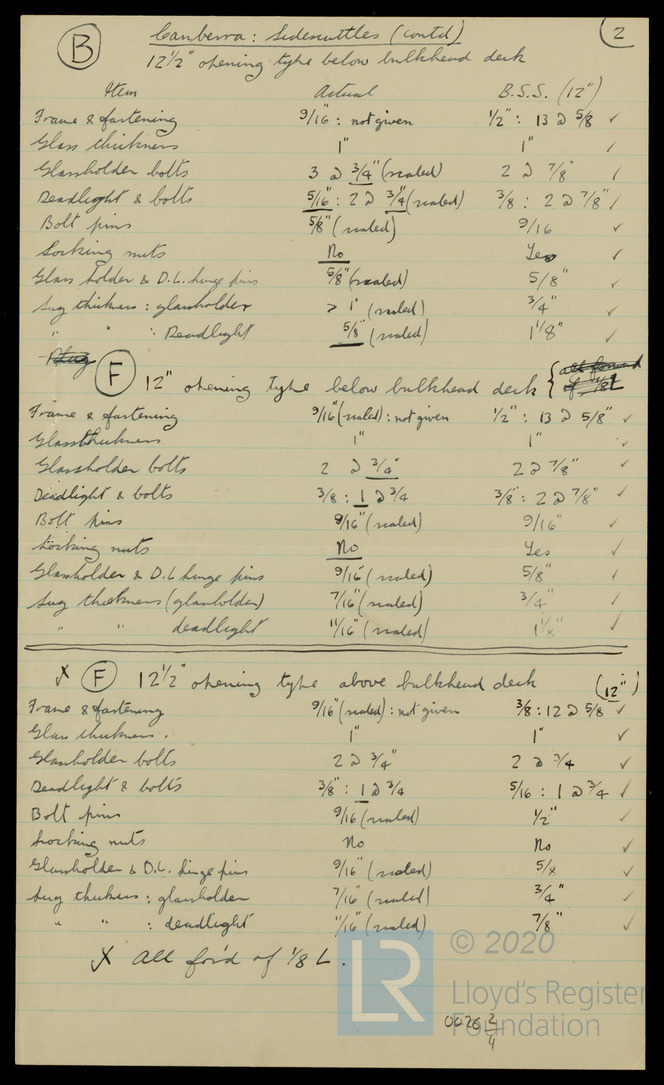 B Canberra: Sidescuttles (contd) 2
12½" opening type below bulkhead deck
Item Actual B.S.S. (12")
Frame & fastening 9/16" : not given ½" : 13 @ 5/8 ✓
Glass thickness 1" 1" ✓
Glassholder bolts 3 @ ¾" (scaled) 2 @ 7/8" ✓
Deadlight & bolts 5/16" : 2 @ ¾" (scaled) 3/8 : 2 @ 7/8" ✓
Bolt pins 5/8" (scaled) 9/16 ✓
Locking nuts No Yes ✓
Glass holder & D.L. hinge pins 5/8" (scaled) 5/8" ✓
Lug thickness : glassholder > 1" (scaled) ¾" ✓
" " : Deadlight 5/8" (scaled) 1 1/8" ✓
F 12" opening type below bulkhead deck {
Frame & fastening 9/16" (scaled) : not given ½" : 13 @ 5/8" ✓
Glass thickness 1" 1" ✓
Glassholder bolts 2 @ ¾" 2 @ 7/8" ✓
Deadlight & bolts 3/8 : 1 @ ¾ 3/8" : 2 @ 7/8" ✓
Bolt pins 9/16" (scaled) 9/16" ✓
Locking nuts No Yes ✓
Glassholder & D.L hinge pins 9/16" (scaled) 5/8" ✓
Lug thickness (glassholder) 7/16" (scaled) ¾" ✓
" " deadlight 11/16" (scaled) 1 1/8" ✓
X F 12½" opening type above bulkhead deck (12")
Frame & fastening 9/16" (scaled) : not given 3/8 : 12 @ 5/8 ✓
Glass thickness . 1" 1" ✓
Glassholder bolts 2 @ ¾" 2 @ ¾ ✓
Deadlight & bolts 3/8" : 1 @ ¾ 5/16 : 1 @ ¾ ✓
Bolt pins 9/16 (scaled) ½" ✓
Locking nuts No No ✓
Glassholder & D.L. hinge pins 9/16" (scaled) 5/8 ✓
Lug thickness : glassholder 7/16" (scaled) ¾" ✓
" " : deadlight 11/16" (scaled) 7/8" ✓
X All for'd of 1/8 L .
LR © 2020
Lloyd's Register
Foundation